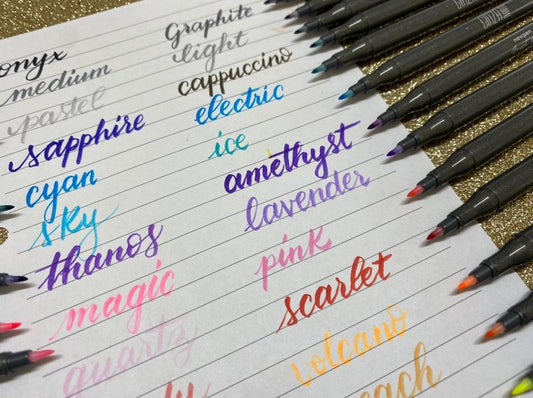 onyx
medium
pastel
sapphire
cyan
sky
thanos
magic
quartz
Graphite
light
cappuccino
electric
ice
amethyst
lavender
pink
scarlet
volcano